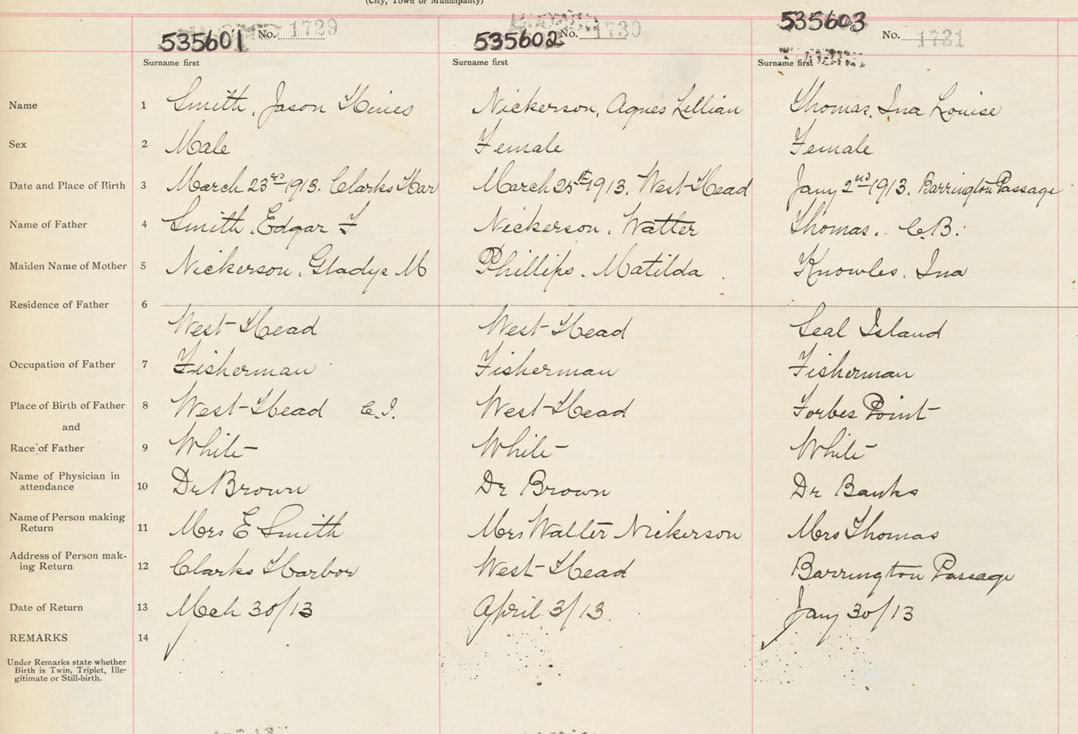 (City, Town or Municipality)
535601 No. 1729 535602 No. 1730 535603 No. 1731
Surname first Surname first Surname first
Name 1 Smith, Jason Hines Nickerson, Agnes Lillian Thomas, Ina Louise
Sex 2 Male Female Female
Date and Place of Birth 3 March 23rd 1913. Clarks Har March 25th 1913, West Head Jany 2nd 1913. Barrington Passage
Name of Father 4 Smith, Edgar F Nickerson, Walter Thomas, C.B.
Maiden Name of Mother 5 Nickerson, Gladys M Phillips, Matilda Knowles, Ina
Residence of Father 6 West Head West Head Seal Island
Occupation of Father 7 Fisherman Fisherman Fisherman
Place of Birth of Father 8 West Head C.I. West Head Forbes Point
and
Race of Father 9 White White White
Name of Physician in
attendance 10 Dr Brown Dr Brown Dr Banks
Name of Person making
Return 11 Mrs E Smith Mrs Walter Nickerson Mrs Thomas
Address of Person mak-
ing Return 12 Clarks Harbor West Head Barrington Passage
Date of Return 13 Mch 30/13 April 3/13. Jany 30/13
REMARKS 14
Under Remarks state whether
Birth is Twin, Triplet, Ille-
gitimate or Still-birth.